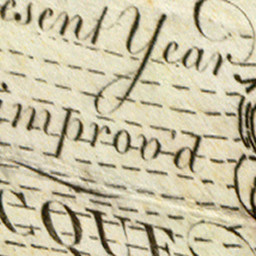 esent Year
improv'd
CQUE